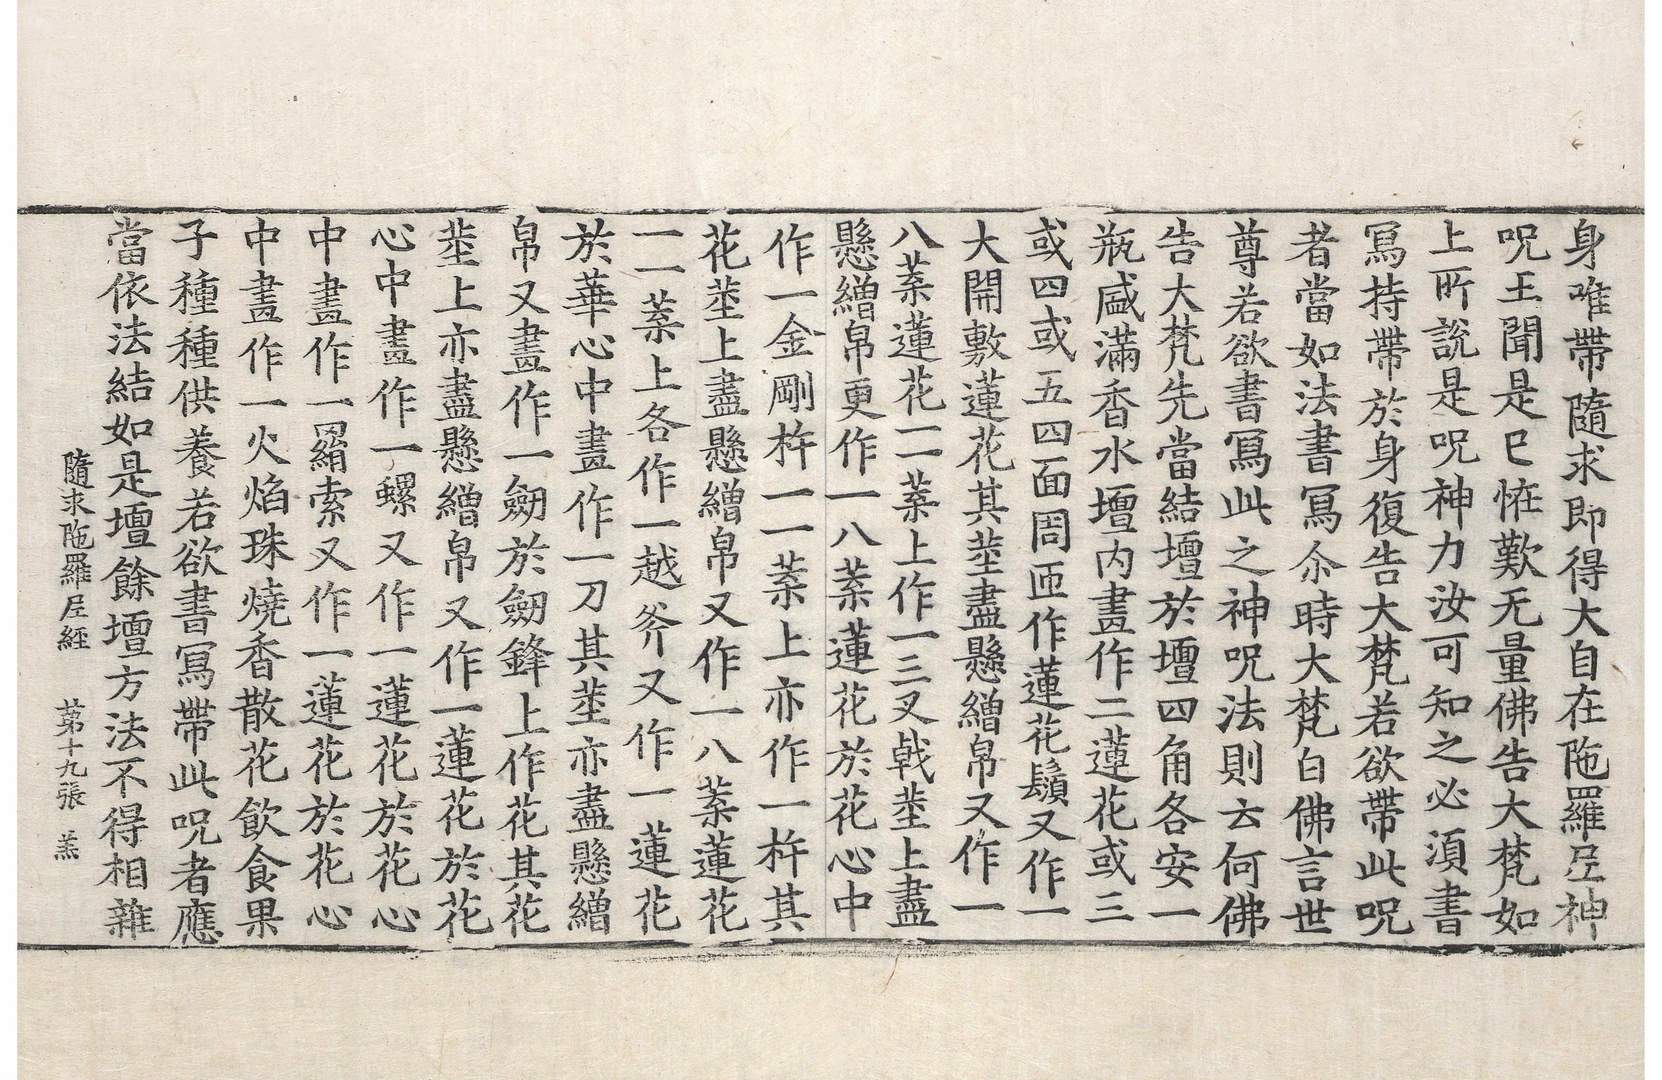 身唯帶隨求即得大自在陁羅𡰱神
呪王聞是巳恠歎无量佛告大梵如
上所說是呪神力汝可知之必湏書
寫持帶於身復告大梵若欲帶此呪
者當如法書寫尒時大梵白佛言世
尊若欲書寫此之神呪法則云何佛
告大梵先當結壇於壇四角各安一
瓶盛滿香水壇內畫作二蓮花或三
或四或五四面周匝作蓮花鬚又作一
大開敷蓮花其莖盡懸繒帛又作一
八葉蓮花一一葉上作一三叉戟莖上盡
懸繒帛更作一八葉蓮花於花心中
作一金剛杵一一葉上亦作一杵其
花莖上盡懸繒帛又作一八葉蓮花
一一葉上各作一越斧又作一蓮花
於華心中畫作一刀其莖亦盡懸繒
帛又畫作一劒於劒鋒上作花其花
莖上亦盡懸繒帛又作一蓮花於花
心中畫作一螺又作一蓮花於花心
中畫作一羂索又作一蓮花於花心
中畫作一火焰珠燒香散花飲食果
子種種供養若欲書寫帶此呪者應
當依法結如是壇餘壇方法不得相雜
隨求陁羅𡰱經 第十九張 羔